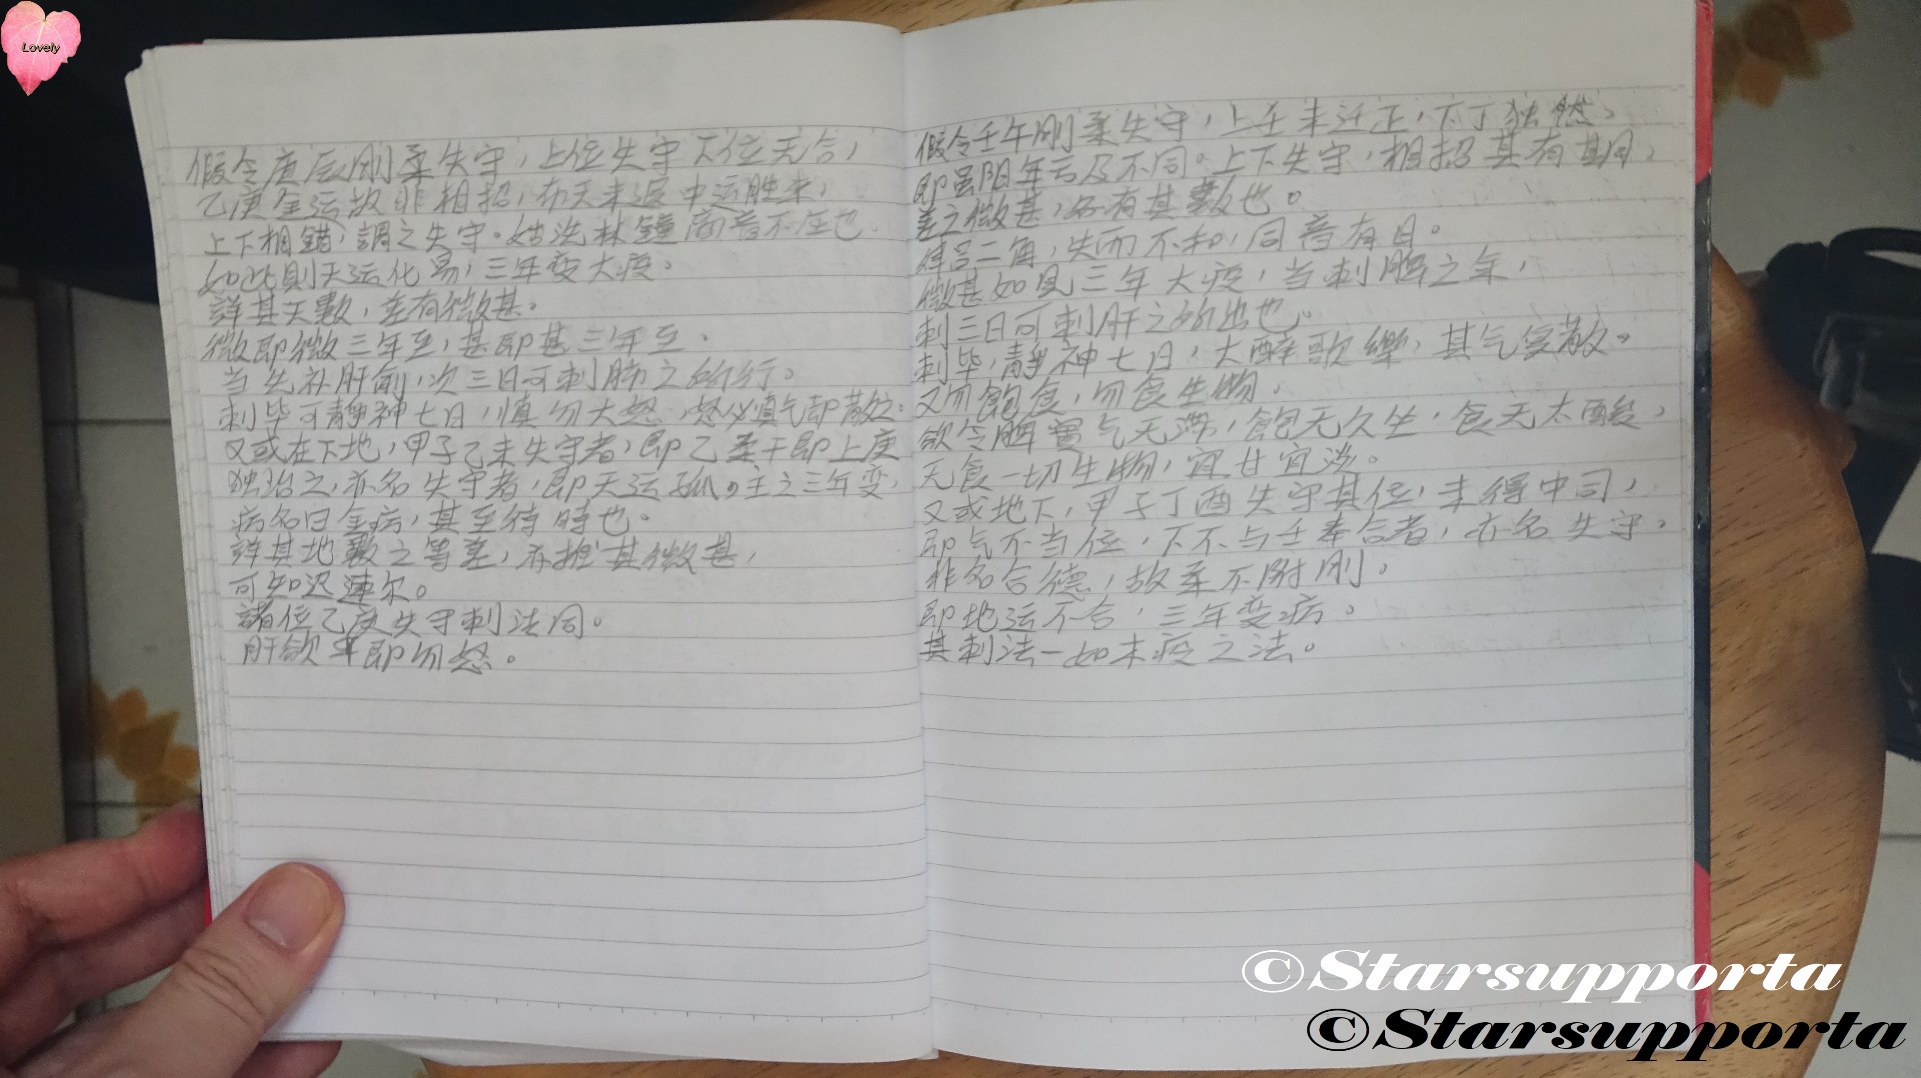 Lovely
假令庚辰刚柔失守，上位失守下位无合，
乙庚金运故非相招，布天未退中运胜来，
上下相錯，謂之失守。姑洗林鐘商音不应也。
如此則天运化易，三年变大疫。
詳其天數，差有微甚。
微即微三年至，甚即甚三年至。
当先补肝俞，次三日可刺肺之所行。
刺毕可静神七日，慎勿大怒，怒必真气却散之。
又或在下地，甲子乙未失守者，即乙柔干即上庚
独治之，亦名失守者，即天运孤。主之三年变，
病名曰金疠，其至待時也。
詳其地數之等差，亦推其微甚，
可知迟速尔。
諸位乙庚失守刺法同。
肝欲平即勿怒。
假令壬午刚柔失守，上壬未迁正，下丁独然，
即虽阳年亏及不同。上下失守，相招其有其期，
差之微甚，各有其數也。
律吕二角，失而不和，同音有日。
微甚如見三年大疫，当刺脾之俞，
刺三日可刺肝之所出也。
刺毕，静神七日，大醉歌樂，其气复散。
又勿飽食，勿食生物。
欲令脾實气无滞，飽无久坐，食无太酸，
无食一切生物，宜甘宜淡。
又或地下，甲子丁酉失守其位，未得中司，
即气不当位，下不与壬奉合者，亦名失守。
非名合德，故柔不附刚。
即地运不合，三年变疠。
其刺法一如木疫之法。
©Starsupporta
©Starsupporta